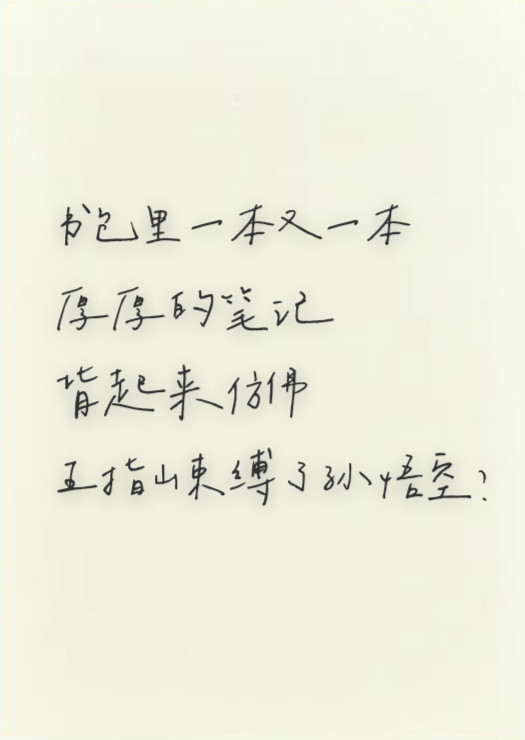 书包里一本又一本
厚厚的笔记
背起来仿佛
五指山束缚了孙悟空?